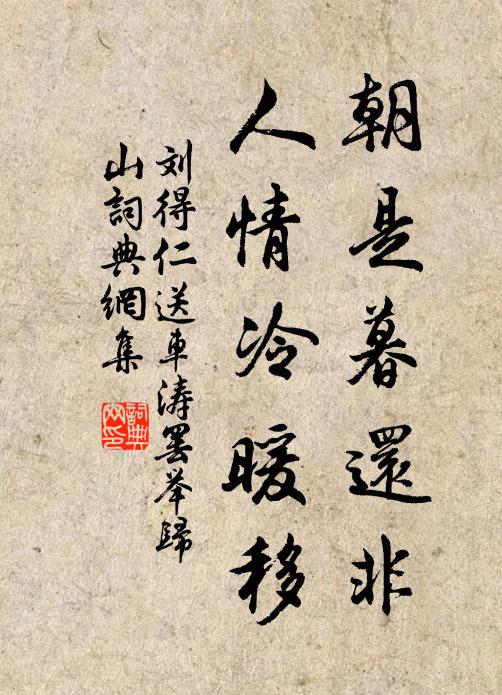 朝是暮還非
人情冷暖移
刘得仁送車濤罢举歸
山詞典網集
詞典网印